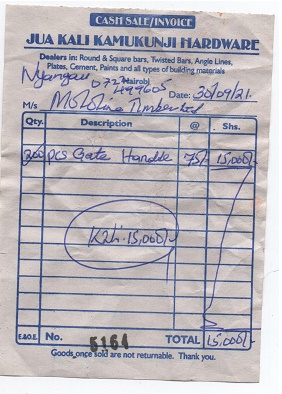 CASH SALE/INVOICE
JUA KALI KAMUKUNJI HARDWARE
Dealers in: Round & Square bars, Twisted Bars, Angle Lines,
Plates, Cement, Paints and all types of building materials
Nairobi
499605 Date: 30/09/21
M/s Timber Ltd
Qty. Description @ Shs.
200 pcs Gate Handle 75/- 15,000/-
15,000/-
E.&O.E. No. 5164 TOTAL 15,000/-
Goods once sold are not returnable. Thank you.